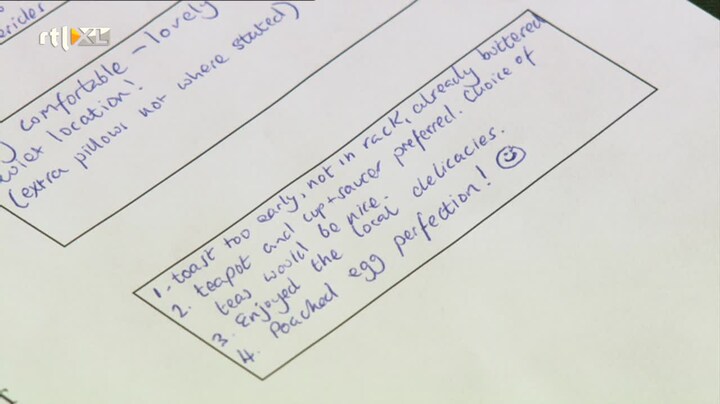 rtl XL
ericles
) comfortable - lovely
quiet location!
(extra pillows not where stated)
1. toast too early, not in rack, already buttered
2. teapot and cup+saucer preferred. Choice of
teas would be nice.
3. Enjoyed the local delicacies.
4. Poached egg perfection! ☺